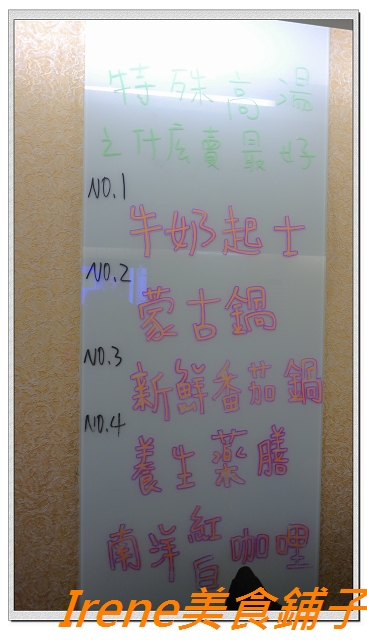 特殊高湯
之什庅賣最好
NO.1
牛奶起士
NO.2
蒙古鍋
NO.3
新鮮番茄鍋
NO.4
養生藥膳
南洋紅白咖哩
Irene美食鋪子